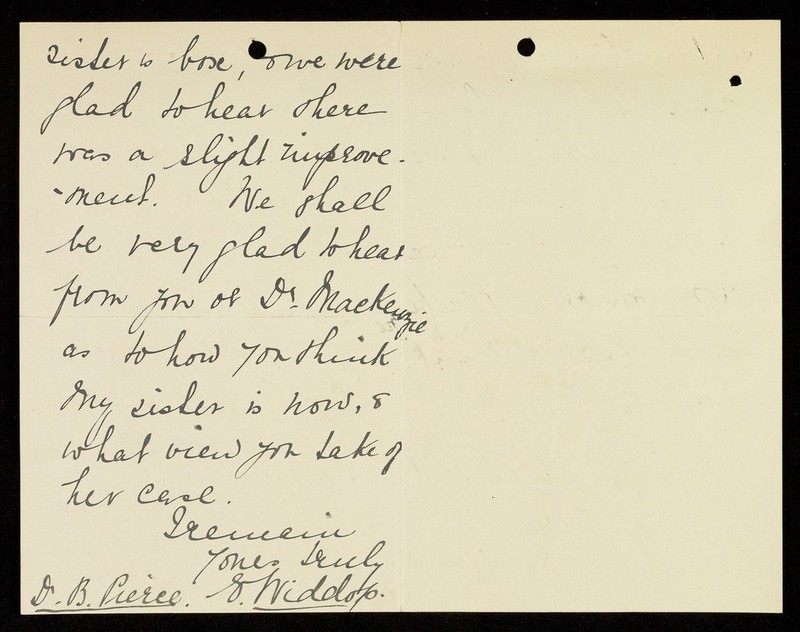 sister's case, & we were
glad to hear there
was a slight improve-
-ment. We shall
be very glad to hear
from you or Dr. Mackenzie
as to how you think
my sister is now, &
what view you take of
her case.
I remain
Yours truly
Dr. B. Pierce. E. Widdop.